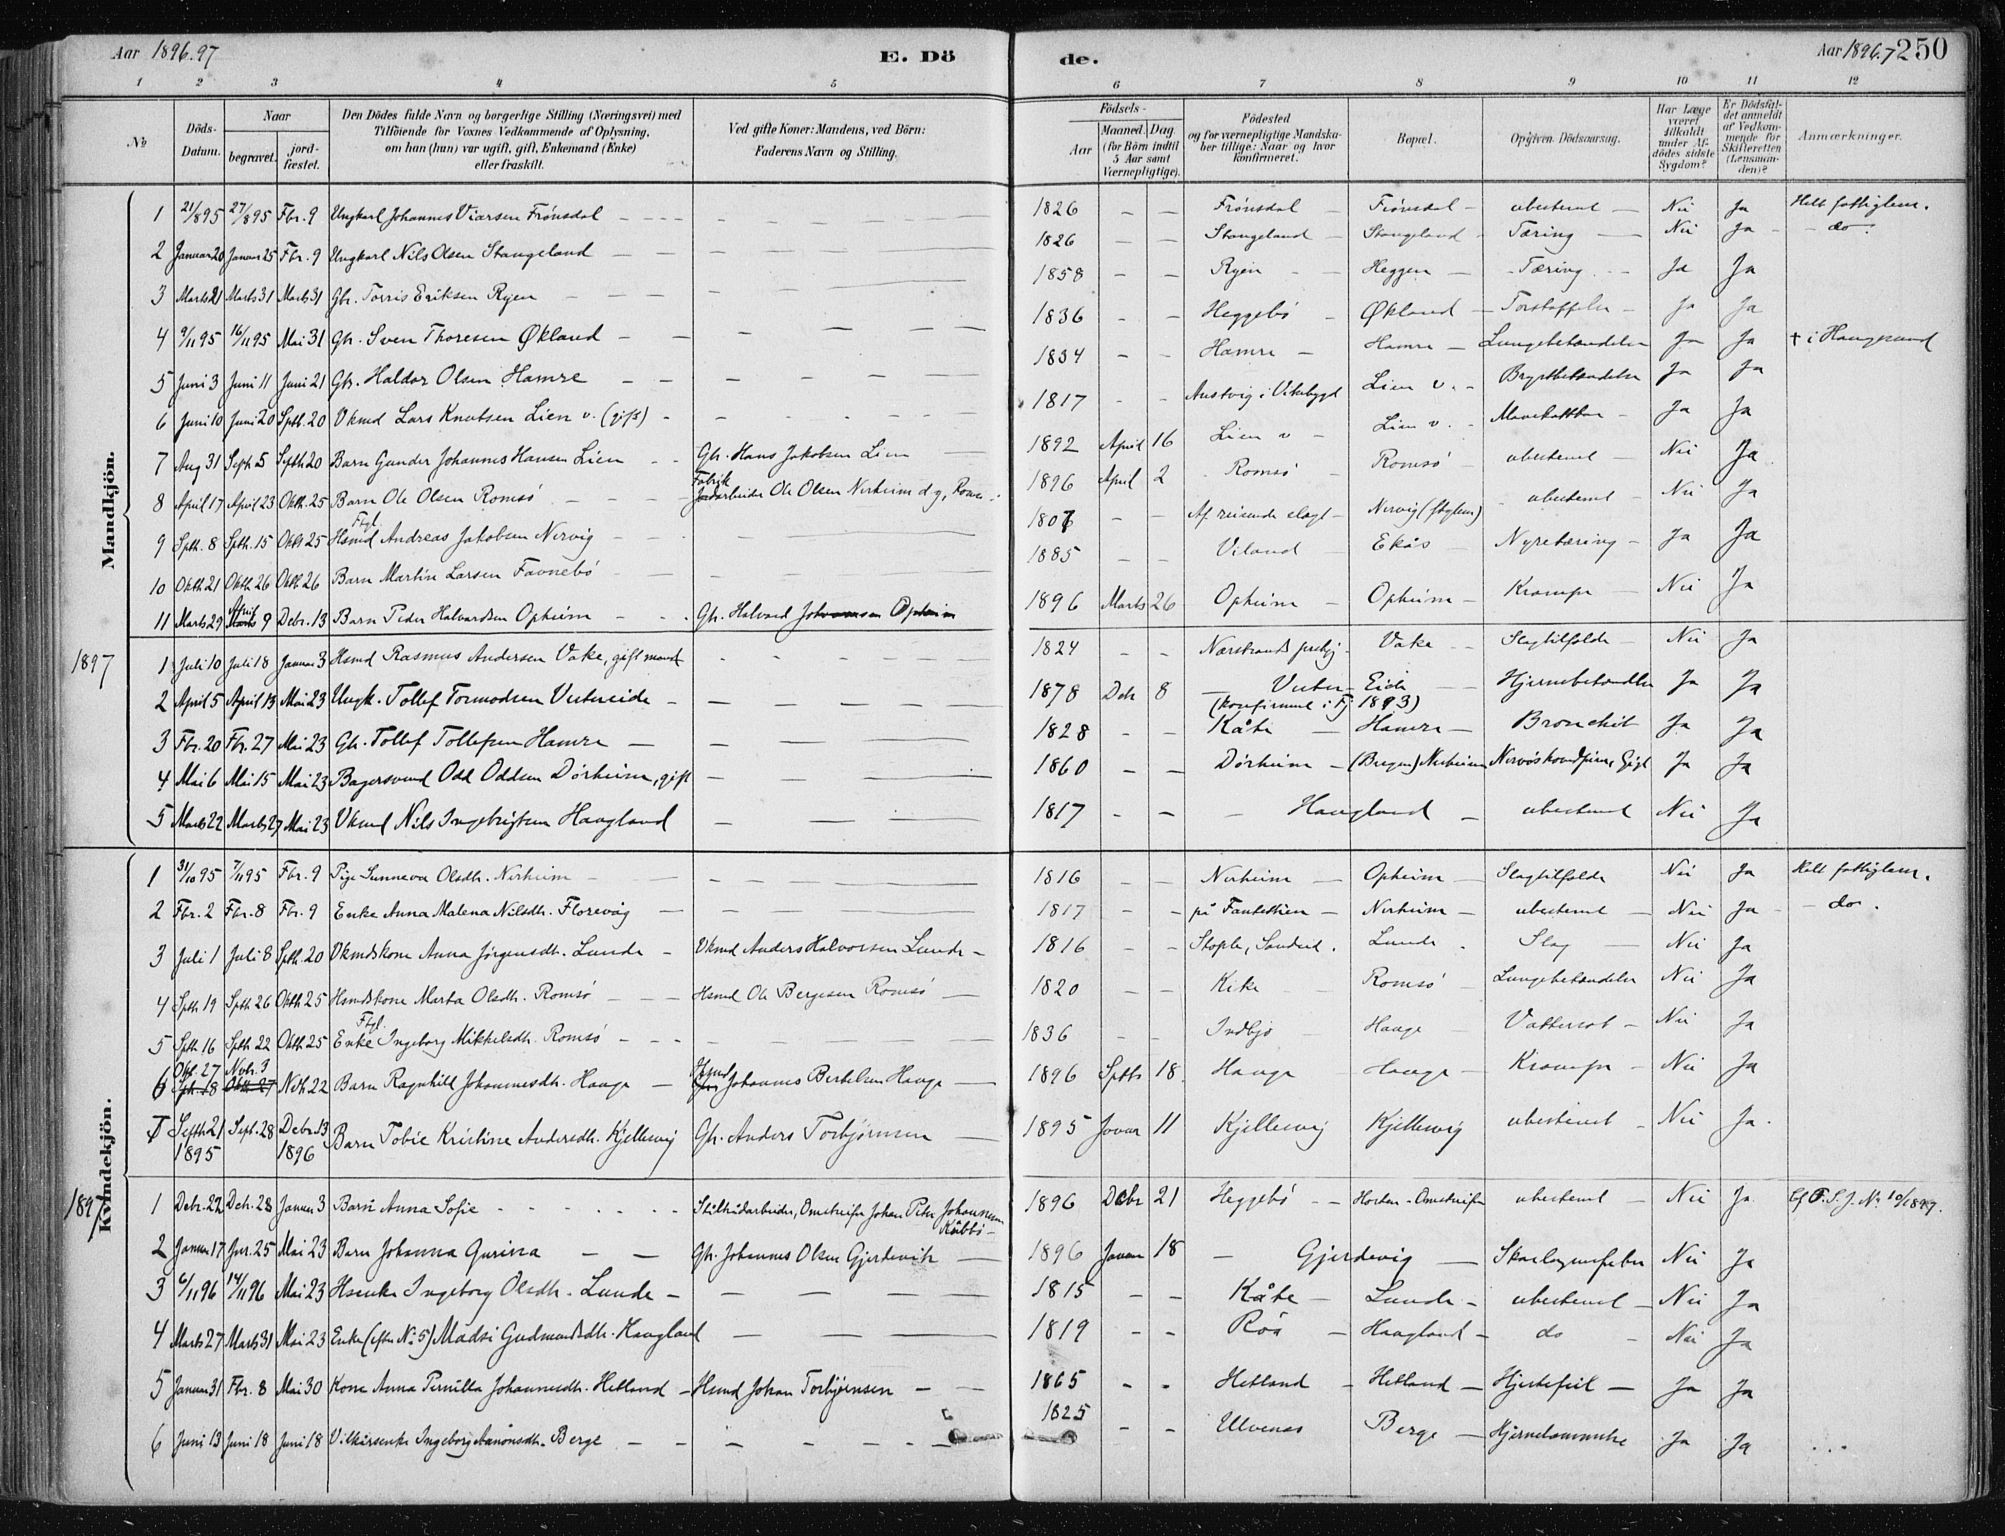 Aar 1896.97
E. Dö
de.
Aar 1896.7 250
1 2 3 4 5 6 7 8 9 10 11 12
No
Döds-Datum.
Naar
begravet.
jordfæstet.
Den Dödes fulde Navn og borgerlige Stilling (Næringsvei) med
Tilföiende for Voxnes Vedkommende af Oplysning,
om han (hun) var ugift, gift, Enkemand (Enke)
eller fraskilt.
Ved gifte Koner: Mandens, ved Börn:
Faderens Navn og Stilling.
Födsels-
Aar
Maaned. Dag
(for Börn indtil
5 Aar samt
Værnepligtige).
Födested
og for værnepligtige Mandska-
ber tillige: Naar og hvor
konfirmeret.
Bopæl.
Opgiven Dödsaarsag.
Har Læge
været
tilkaldt
under Af-
dödes sidste
Sygdom?
Er Dödsfal-
det anmeldt
af Vedkom-
mende for
Skifteretten
(Lensman-
den)?
Anmærkninger.
Mandkjön.
1 21/8 95 27/8 95 Fbr. 9 Ungkarl Johannes Viarsen Frönsdal 1826 Frönsdal Frönsdal ubestemt Nei Ja Helt fattiglem.
2 Januar 20 Januar 25 Fbr. 9 Ungkarl Nils Olsen Stangeland 1826 Stangeland Stangeland Tæring Nei Ja do.
3 Marts 21 Marts 31 Marts 31 Gbr. Torris Eriksen Ryen 1858 Ryen Heggen Tæring Ja Ja
4 9/11 95 16/11 95 Mai 31 Gbr. Sven Thoresen Økland 1836 Heggebö Økland Ja Ja † i Haugesund
5 Juni 3 Juni 11 Juni 21 Gbr. Haldor Olsen Hamre 1834 Hamre Hamre Lungebetændelse Ja Ja
6 Juni 10 Juni 20 Sptb. 20 Vkmd Lars Knutsen Lien v. (gift) 1817 Austvig i Vikebygd Lien v. Brystbetændelse Ja Ja
7 Aug 31 Septb. 5 Septb 20 Barn Gunder Johannes Hansen Lien Gbr. Hans Jakobsen Lien 1892 April 16 Lien v Lien v. Ja Ja
8 April 17 April 23 Oktb. 25 Barn Ole Olsen Romsö Fabrikarbeider Ole Olsen Nerheim 1896 April 2 Romsö Romsö ubestemt Nei Ja
9 Sptb. 8 Sptb. 15 Oktb 25 Ftgl. Hsmd Andreas Jakobsen Nervig 1807 Af reisende slagt Nervig (ftglem) ubestemt Nei Ja
10 Oktb 21 Oktb. 26 Oktb 26 Barn Martin Larsen Favnebö 1885 Viland Ekås Nyretæring Ja Ja
11 Marts 29 April 9 Debr. 13 Barn Peder Halvardsen Opheim Gbr. Halvard Johannesen Opheim 1896 Marts 26 Opheim Opheim Krampe Nei Ja
1897
1 Juli 10 Juli 18 Januar 3 Hsmd Rasmus Andersen Vake, gift mand 1824 Nærstrands prstgj. Vake Slagtilfælde Nei Ja
2 April 5 April 13 Mai 23 Ungk. Tollef Tormodsen 1878 Debr 8 Eide Hjernebetændelse Ja Ja
3 Fbr. 20 Fbr. 27 Mai 23 Gbr. Tollef Tollefsen Hamre 1828 Kåte Hamre Bronchit Ja Ja
4 Mai 6 Mai 15 Mai 23 Bagersvend Odd Oddsen Dörheim, gift 1860 Dörheim (Bergen) Nerheim Ja Ja
5 Marts 22 Marts 27 Mai 23 Vkmd Nils Ingebrigtsen Haugland 1817 Haugland ubestemt Nei Ja
Kvindekjön.
1 31/10 95 7/11 95 Fbr. 9 Pige Sunneva Olsdtr. Nerheim 1816 Nerheim Opheim Slagtilfælde Nei Ja Helt fattiglem.
2 Fbr. 2 Fbr. 8 Fbr. 9 Enke Anna Malena Nilsdtr. Florevåg 1817 på Nerheim ubestemt Nei Ja do.
3 Juli 1 Juli 8 Sptb. 20 Vkmdskone Anna Jörgensdtr. Lunde Vkmd Anders Halvorsen Lunde 1816 Stople, Sandeid. Lunde Slag Nei Ja
4 Sptb 19 Sptb 26 Oktb 25 Hsmdskone Marta Olsdtr. Romsö Hsmd Ole Bergesen Romsö 1820 Kike Romsö Lungebetændelse Nei Ja
5 Sptb 16 Sptb 22 Oktb 25 Ftgl. Enke Ingeborg Mikkelsdtr. Romsö 1836 Indbjo Hauge Vattersot Nei Ja
6 Oktb. 27 Novbr. 3 Novb 22 Barn Ragnhild Johannesdtr. Hauge Hsmd Johannes Bertelsen Hauge 1896 Septb 18 Hauge Hauge Krampe Nei Ja
7 Septb 21 1895 Sept. 28 Debr. 13 1896 Barn Tobie Kristine Andersdtr. Kjellesvig Gbr. Anders Torbjörnsen 1895 Januar 11 Kjellesvig Kjellesvig ubestemt Nei Ja.
1897
1 Debr. 22 Debr. 28 Januar 3 Barn Anna Sofie Omstreifer Johan Peter Johannesen 1896 Debr 21 Heggebö Omstreifer ubestemt Nei Ja Cf F.S.J. No 10/1897.
2 Januar 17 Jnr. 25 Mai 23 Barn Johanna Gurina Gbr. Johannes Olsen Gjerdevik 1896 Januar 18 Gjerdevig Skarlagensfeber Nei Ja
3 6/11 96 14/11 96 Mai 23 Hsenke Ingeborg Olsdtr. Lunde 1815 Kåte Lunde ubestemt Nei Ja
4 Marts 27 Marts 31 Mai 23 Enke (efter No 5) Madsi Gudmundsdtr. Haugland 1819 Röa Haugland do Nei Ja
5 Januar 31 Fbr. 8 Mai 30 Kone Anna Pernilla Johannesdtr. Hetland Hsmd Johan Torbjörnsen 1865 Hetland Hetland Hjertefeil Ja Ja
6 Juni 13 Juni 18 Juni 18 Ingeborg Berge 1825 Ulvenes Berge Ja Ja